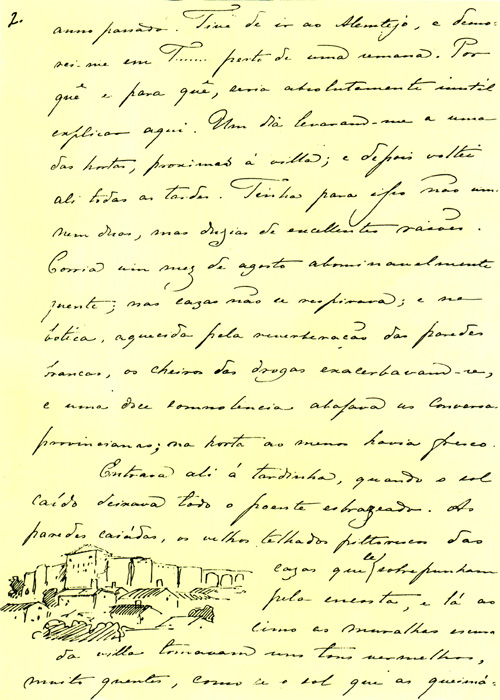 2.
anno passado. Tive de ir ao Alemtejo, e demo-
rei-me em T...... perto de uma semana. Por
quê e para quê, seria absolutamente inutil
explicar aqui. Um dia levaram-me a uma
das hortas, proximas á villa; e depois voltei
ali todas as tardes. Tinha para isso não um
nem duas, mas duzias de excellentes rasões.
Corria um mez de agosto abominavelmente
quente; nas cazas não se respirava; e na
botica, aquecida pela reverberação das paredes
brancas, os cheiros das drogas exacerbavam-se,
e uma doce somnolencia abafava as conversas
provincianas; na horta ao menos havia fresco.
Entrava ali á tardinha, quando o sol
caído deixava todo o poente esbrazeado. As
paredes caiádas, os velhos telhados pittorescos das
cazas que se sobrepunham
pela encosta, e lá ao
cimo as muralhas escuras
da villa tomavam uns tons vermelhos,
muito quentes, como se o sol que as queimá-